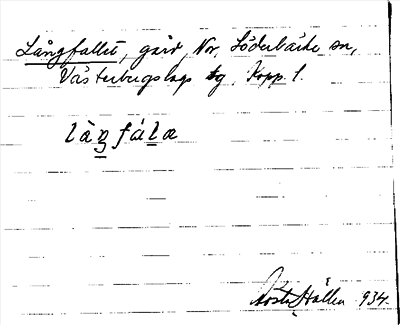 Långfallet, gård, Nor, Söderbärke sn,
Västerbergslags tg, Kopp. l.
làŋfála
Gösta Hallen 934.